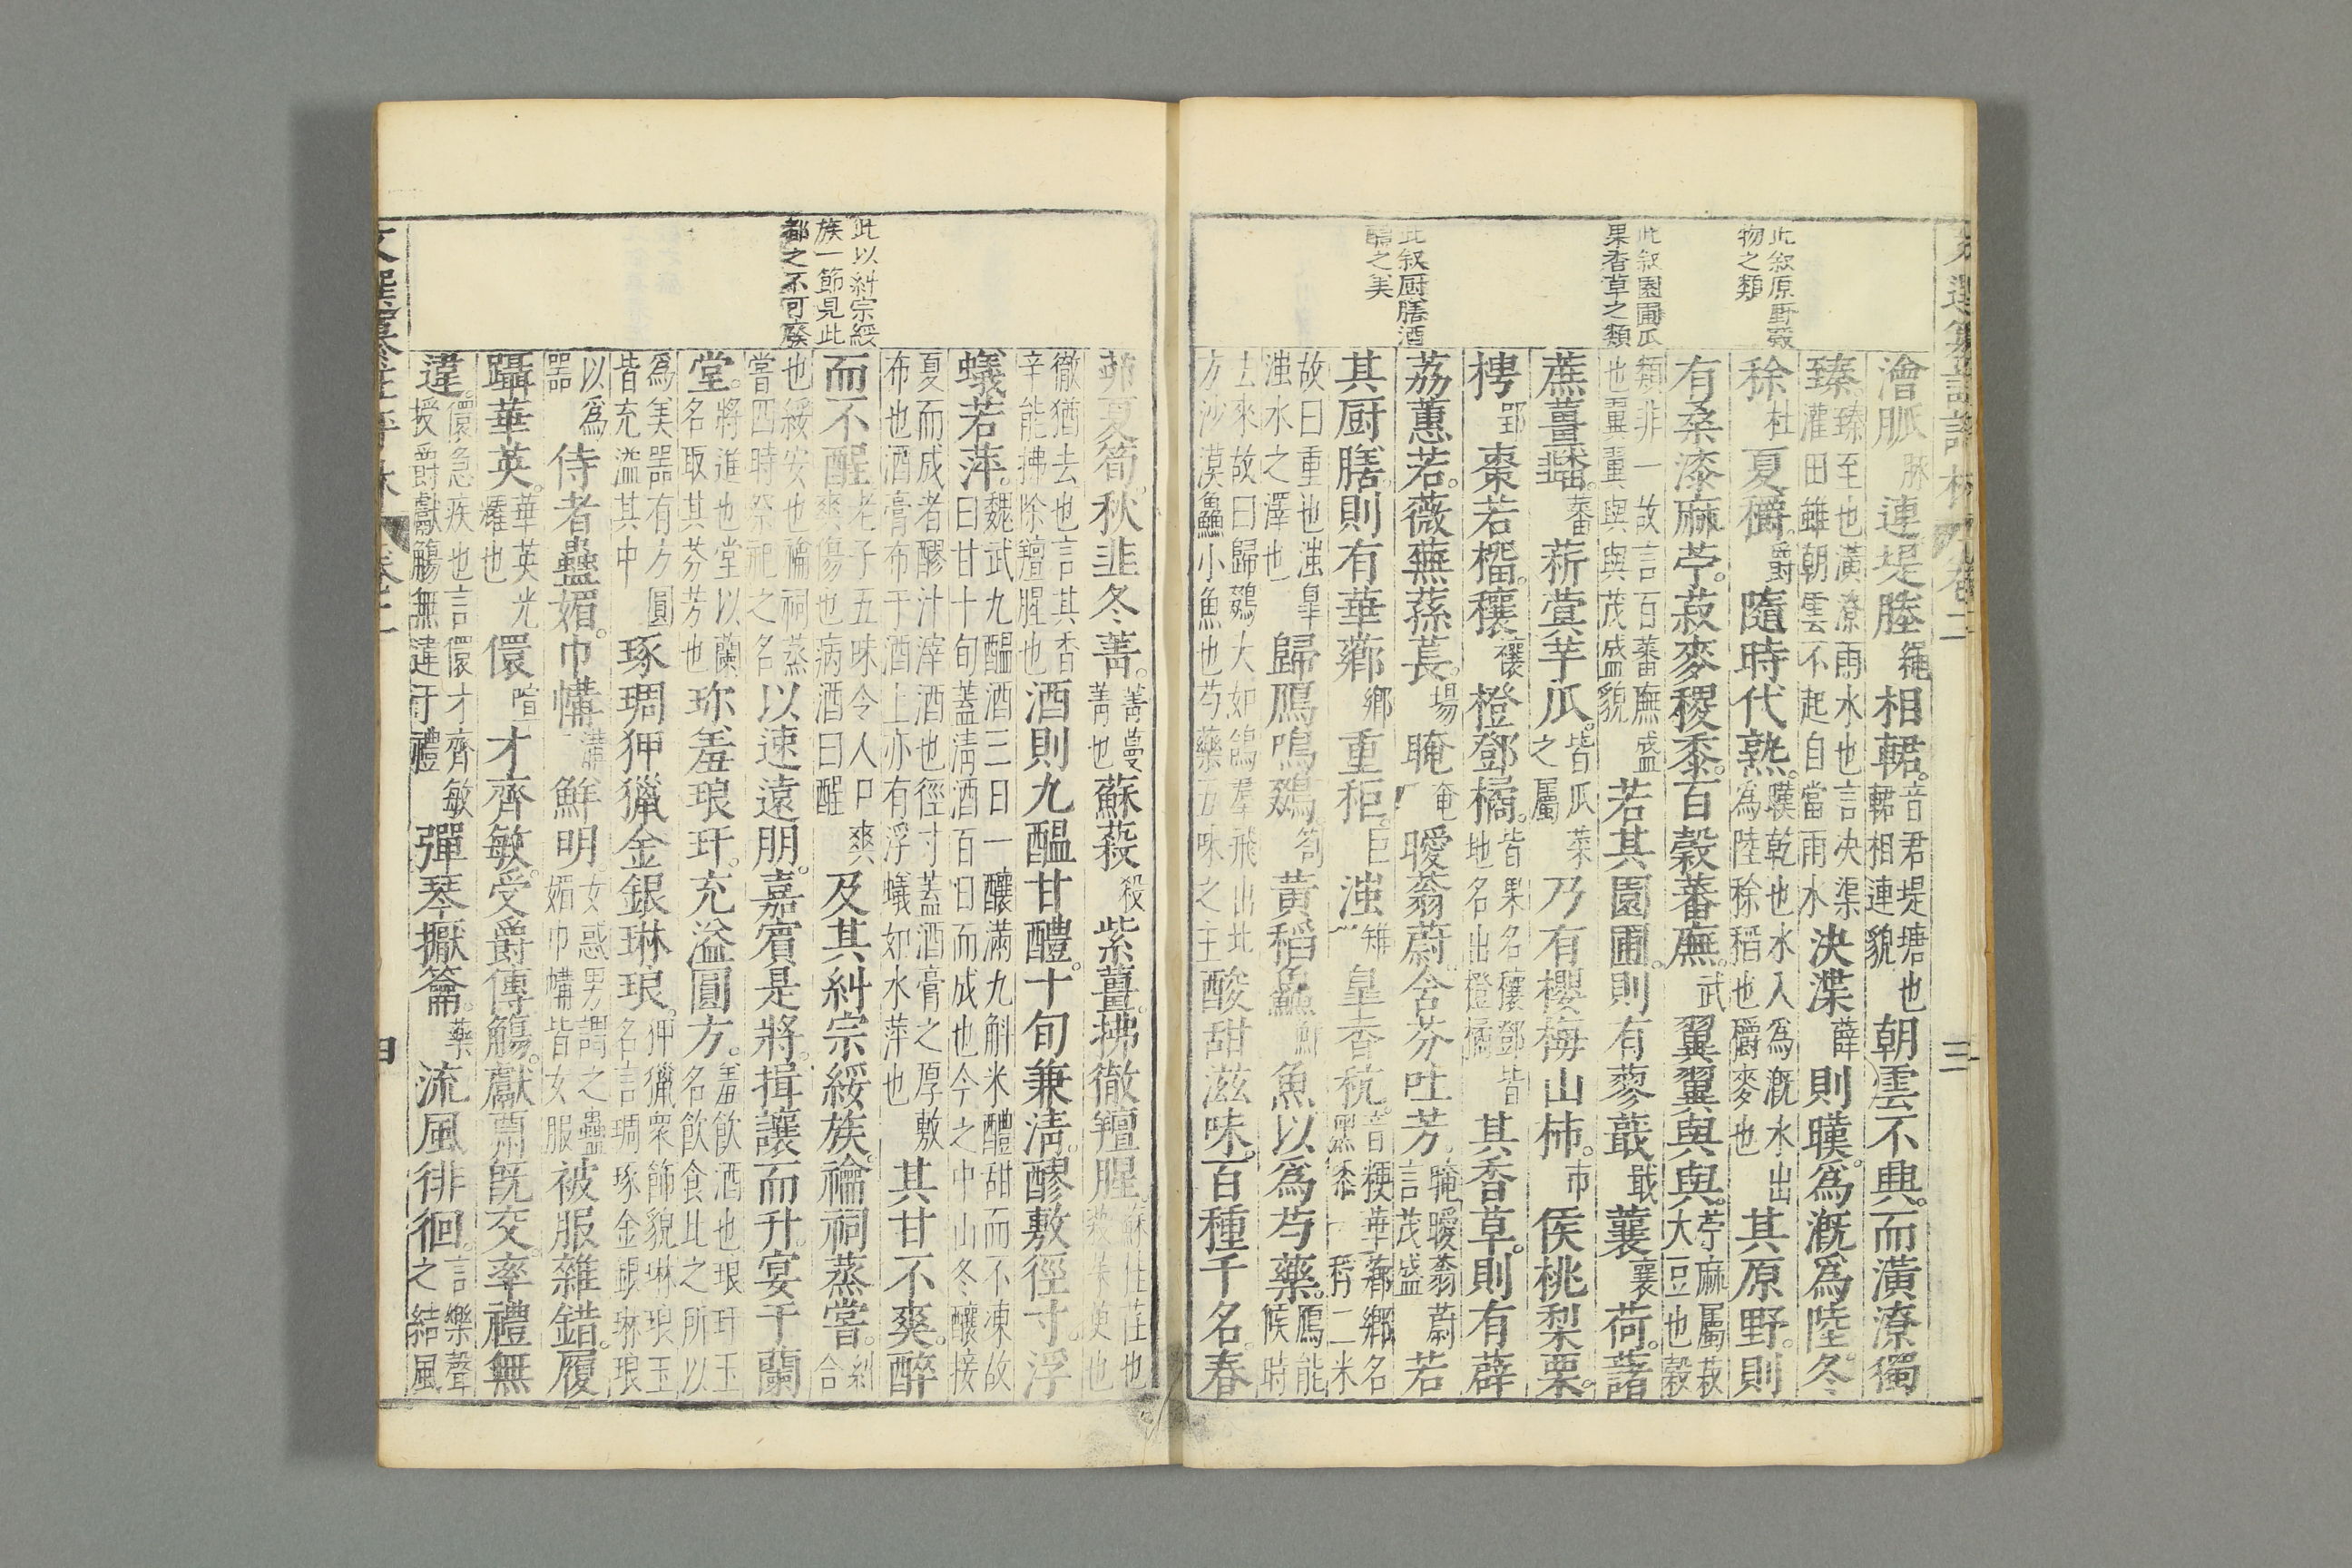 此叙原野發
物之類
此叙園圃瓜
果香草之類
此叙厨膳酒
醴之美
澮脈脉連堤塍繩相輑音君堤塘也輑相連貌朝雲不興而潢潦獨
臻臻至也潢潦雨水也言決渠灌田雖朝雲不起自當雨水決渫薛則暵為溉為陸冬
稌杜夏穱爵隨時代熟暵乾也水入為溉水出為陸稌稻也穱麥也其原野則
有桑漆麻苧菽麥稷黍百穀蕃廡武翼翼與與苧麻屬菽大豆也穀
類非一故言百蕃廡盛也翼翼與與茂盛貌若其園圃則有蓼蕺戢蘘襄荷藷
蔗薑䪤蕃菥蓂芋瓜皆瓜菜之屬乃有櫻梅山柿市侯桃梨栗
梬郢棗若榴穰穰橙鄧橘皆果名穰鄧皆地名出橙橘其香草則有薜
荔蕙若薇蕪蓀萇場晻奄曖蓊蔚含芬吐芳晻曖蓊蔚言茂盛若
其厨膳則有華薌鄉重秬巨滍雉皐香秔音粳華薌鄉名秬黑黍一稃二米
故曰重也滍皐滍水之澤也歸鴈鳴鵽芻黃稻鱻鮮魚以為芍藥鴈能候時
去來故曰歸鵽大如鴿羣飛出北方沙漠鱻小魚也芍藥五味之主酸甜滋味百種千名春
三
此以糾宗綏
族一節見此
都之不可廢
茆夏筍秋韭冬菁菁蔓菁也蘇蔱殺紫薑拂徹羶腥蘇荏也蔱茱萸也
徹猶去也言其香辛能拂除羶腥也酒則九醞甘醴十旬兼清醪敷徑寸浮
蟻若萍魏武九醞酒三日一釀滿九斛米醴甜而不凍故曰甘十旬蓋清酒百日而成也今之中山冬釀接
夏而成者醪汁滓酒也徑寸蓋酒膏之厚敷布也酒膏布于酒上亦有浮蟻如水萍也其甘不爽醉
而不酲老子五味令人口爽爽傷也病酒曰酲及其糾宗綏族禴祠蒸嘗糾合
也綏安也禴祠蒸嘗四時祭祀之名以速遠朋嘉賓是將揖讓而升宴于蘭
堂將進也堂以蘭名取其芬芳也珍羞琅玕充溢圓方羞飲酒也琅玕玉名飲食比之所以
為美器有方圓皆充溢其中琢琱狎獵金銀琳琅狎獵衆飾貌琳琅玉名言琱琢金銀琳琅
以為器侍者蠱媚巾㡚溝鮮明女惑男謂之蠱媚巾㡚皆女服被服雜錯履
躡華英華英光耀也儇喧才齊敏受爵傳觴獻酬旣交率禮無
違儇急疾也言儇才齊敏授爵獻觴無違于禮彈琴擫籥藥流風徘徊言樂聲之結風